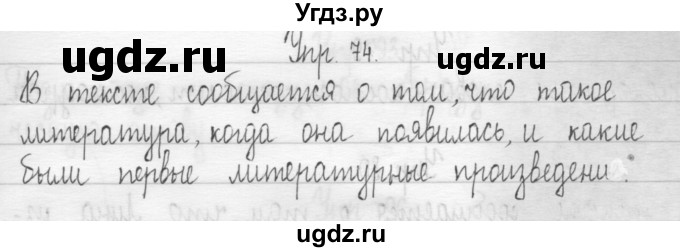 Угдз.ру
ugdz.ru ugdz.ru
Упр. 74.
В тексте сообщается о том, что такое
литература, когда она появилась, и какие
были первые литературные произведени
ugdz.ru ugdz.ru